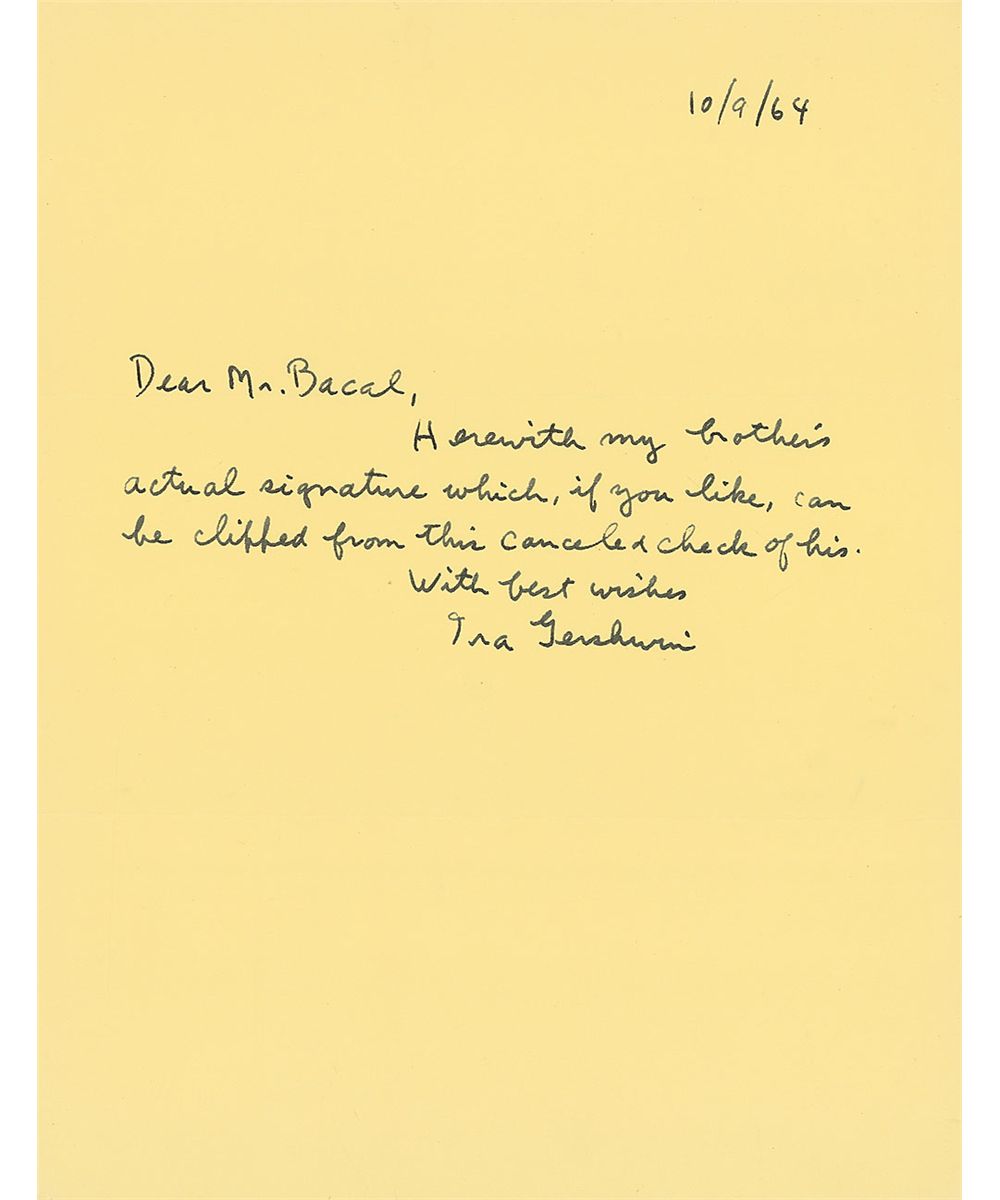 10/9/64
Dear Mr. Bacal,
Herewith my brother's
actual signature which, if you like, can
be clipped from this canceled check of his.
With best wishes
Ira Gershwin